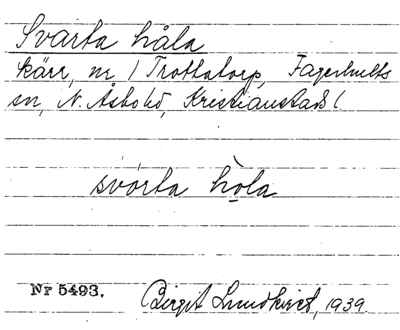 Svarta håla
kärr, nr 1 Trottatorp, Fagerhults
sn, N. Åsbo hd, Kristianstads l.
svárta hǫ̀la
Nr 5493. Birgit Lundkvist, 1939.